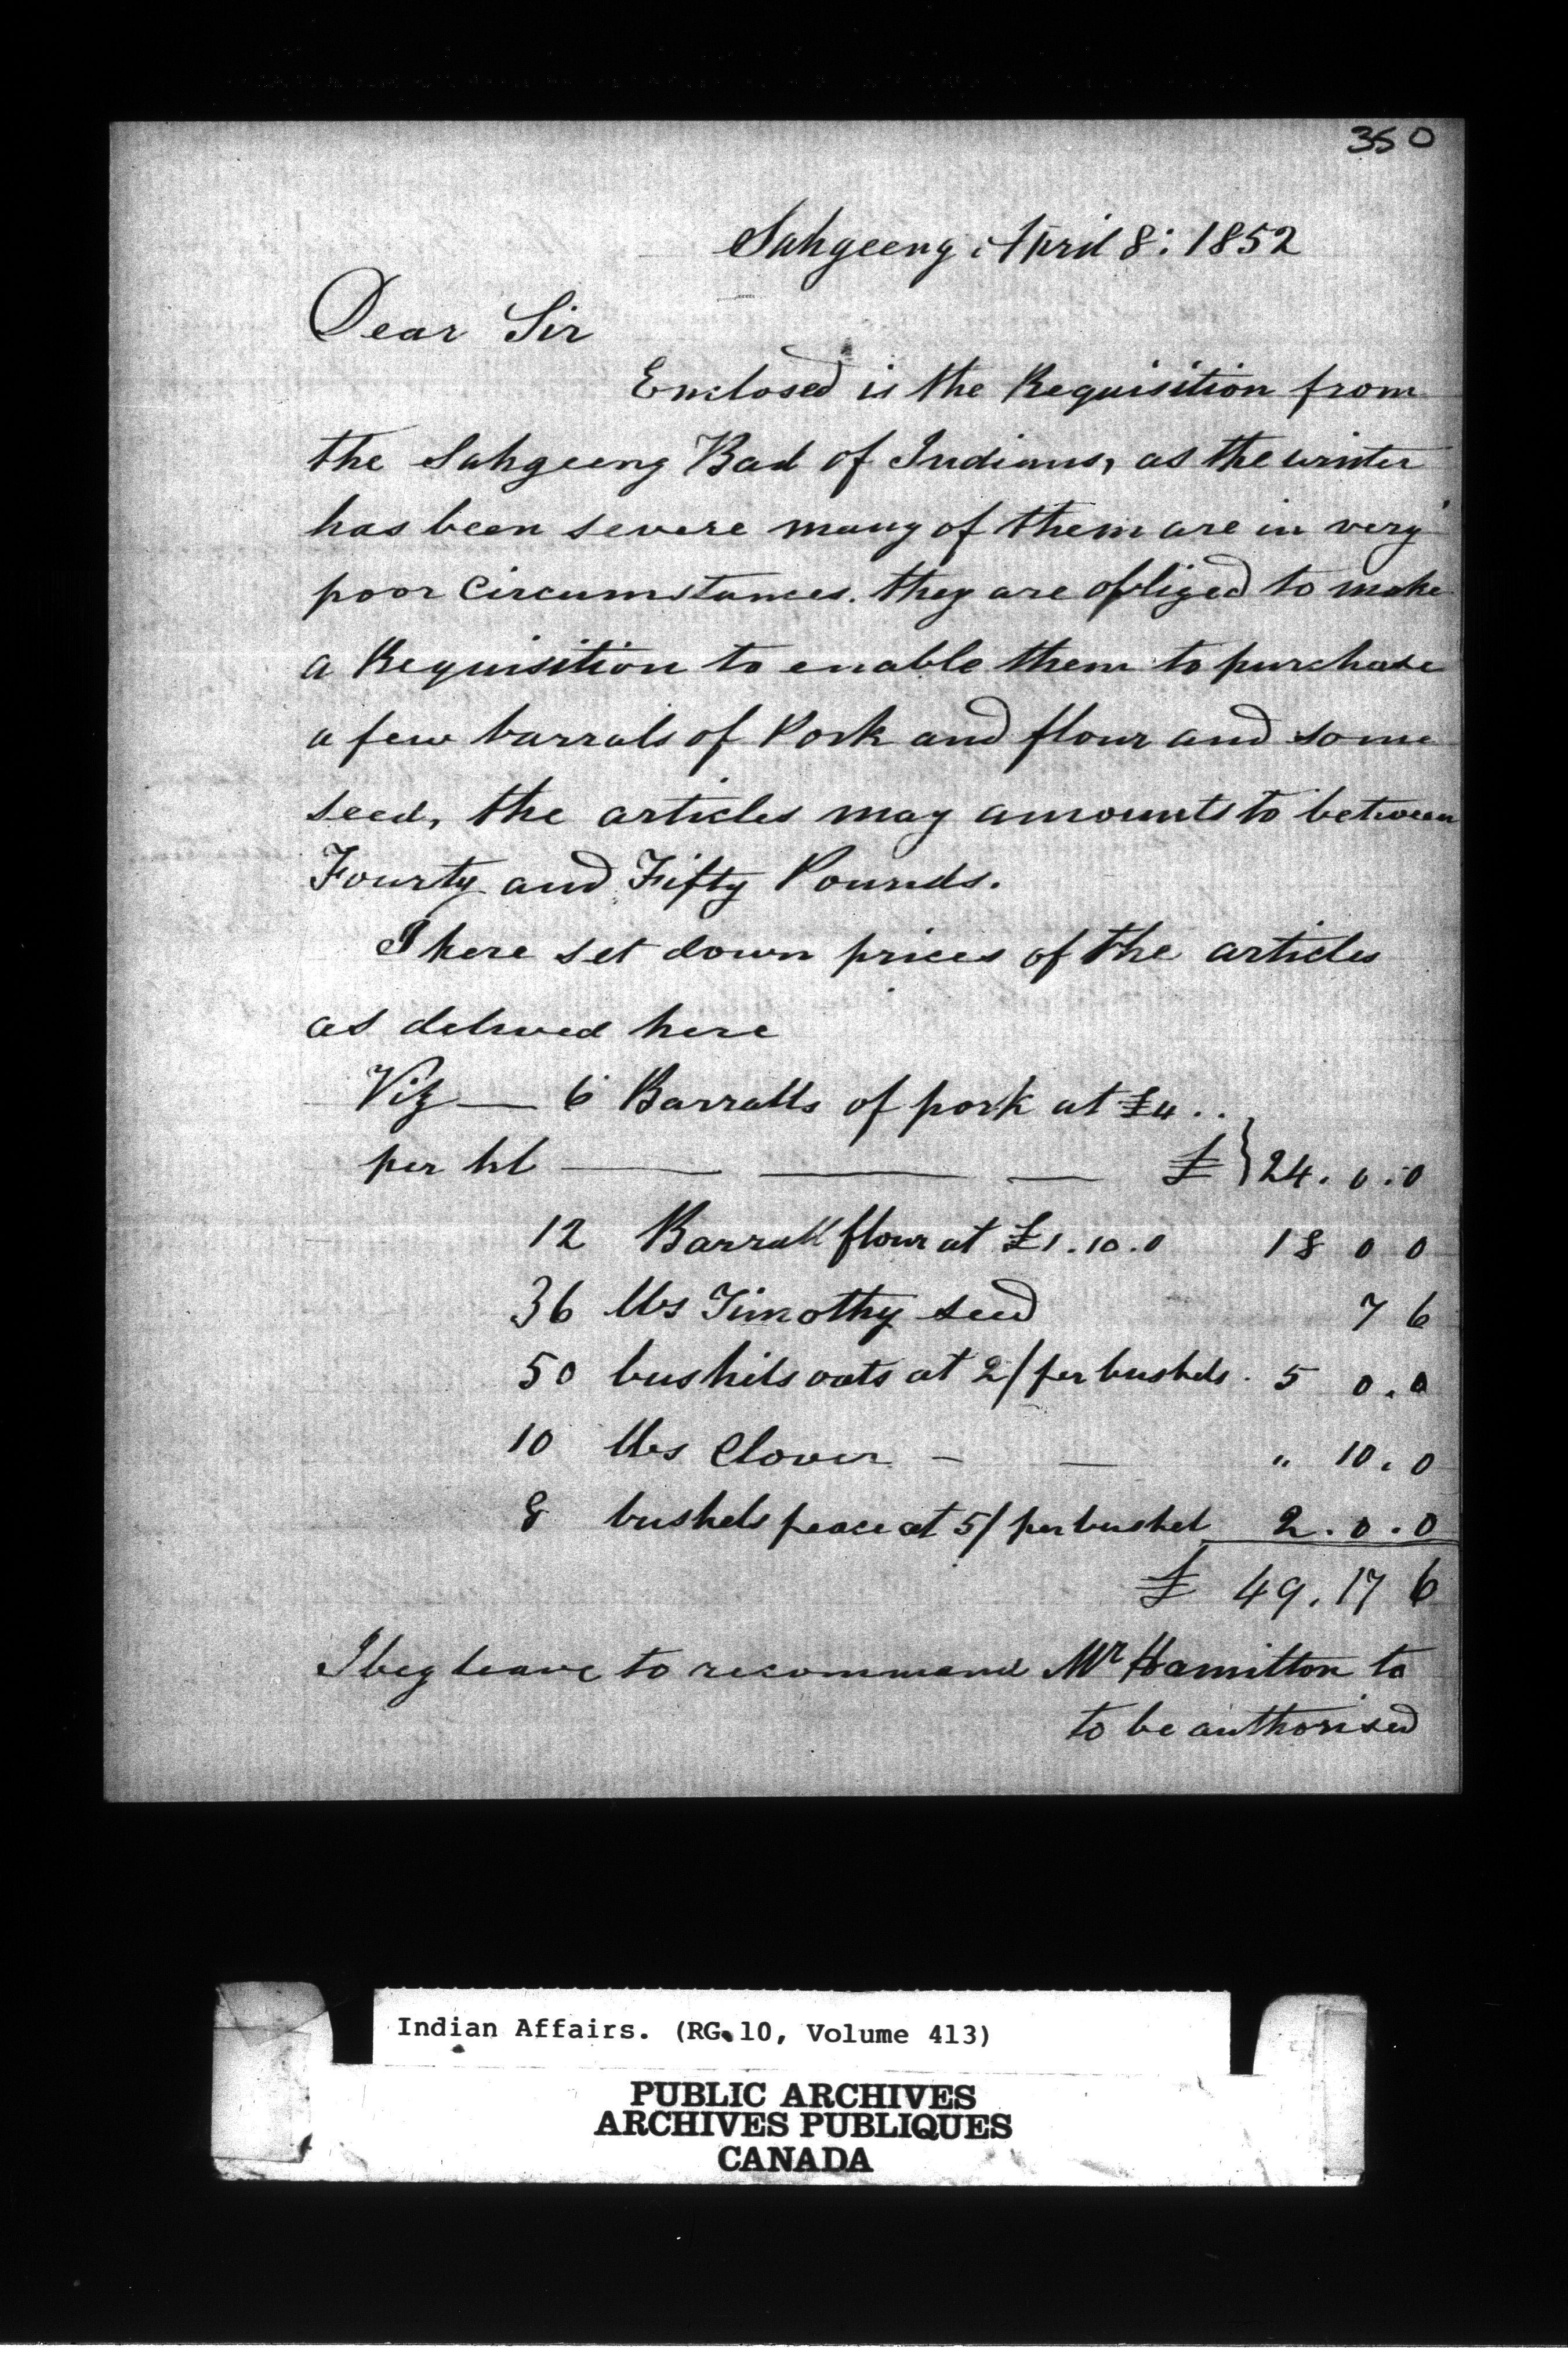 350
Sahgeeng April 8: 1852
Dear Sir
Enclosed is the Requisition from
the Sahgeeng Bad of Indians, as the winter
has been severe many of them are in very
poor Circumstances. they are obliged to make
a Requisition to enable them to purchase
a few barrals of Pork and flour and some
seed, the articles may amounts to between
Fourty and Fifty Pounds.
I here set down prices of the articles
as delived here
Viz — 6 Barralls of pork at £4 . .
per bl — — — £ } 24 . 0 . 0
12 Barrall flour at £1 . 10 . 0 18 0 0
36 lbs Timothy seed 7 6
50 bushils oats at 2/ per bushels . 5 0 . 0
10 lbs Clover - — " 10 . 0
8 bushels peace at 5/ per bushel 2 . 0 . 0
£ 49 . 17 6
I beg leave to recommend Mr Hamilton to
to be authorised
Indian Affairs. (RG.10, Volume 413)
PUBLIC ARCHIVES
ARCHIVES PUBLIQUES
CANADA